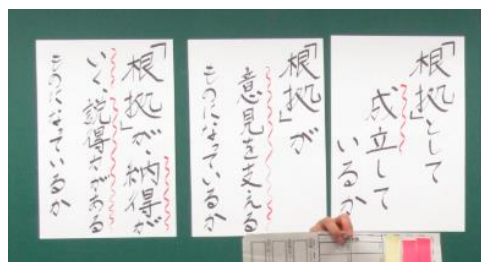 「根拠」として
成立して
いるか
「根拠」が
意見を支える
ものになっているか
「根拠」が、納得が
いく、説得力がある
ものになっているか